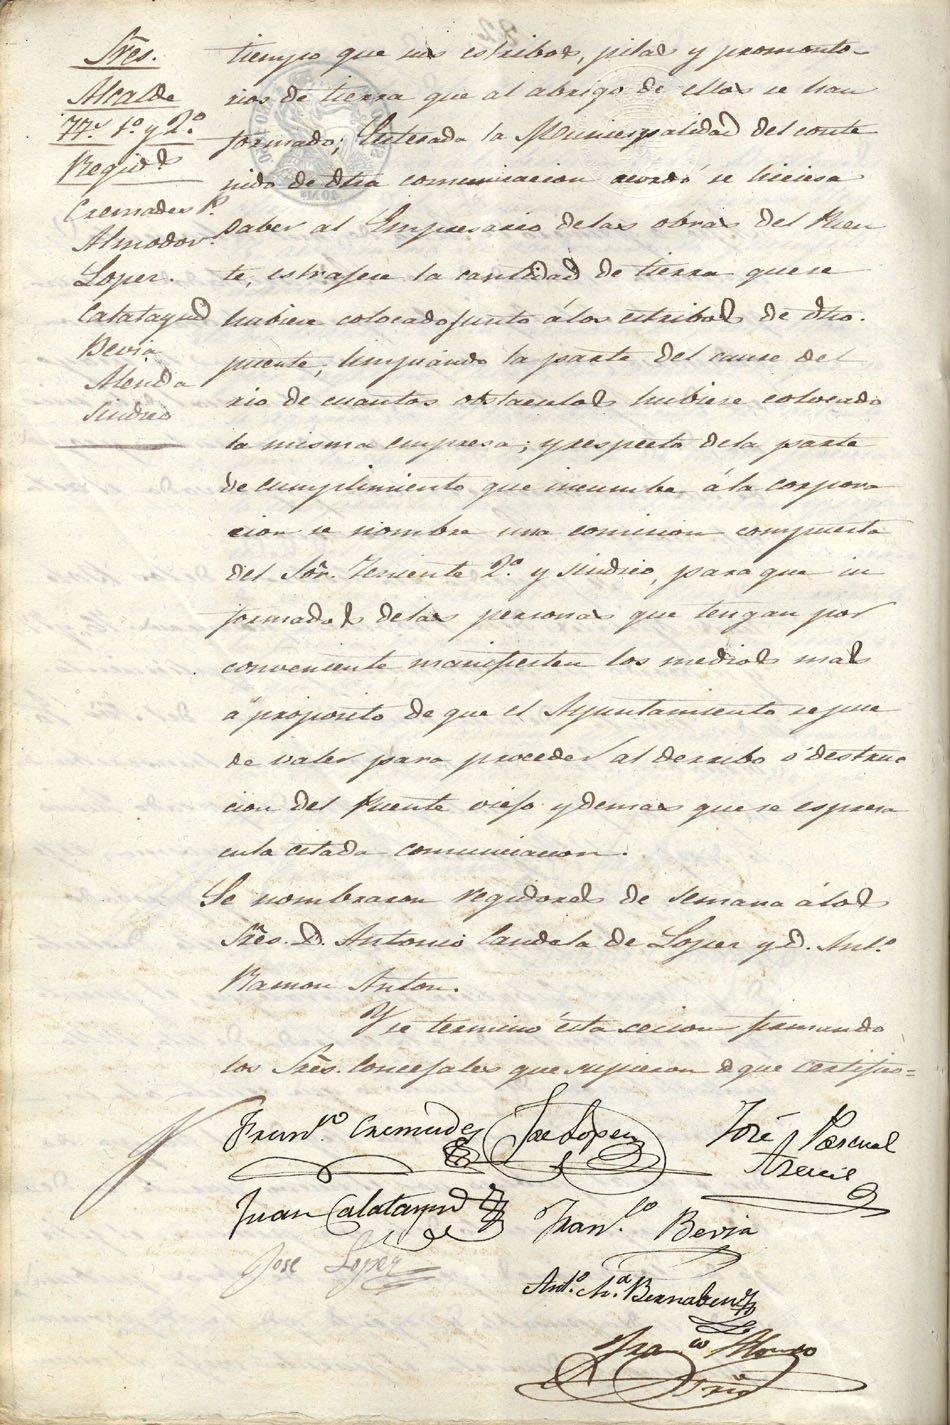 Sres.
Alcalde
TT.s 1.º y 2.º
Regid.s
Cremades P.
Almodov.r
Lopez.
Calatayud
Bevia
Alenda
Sindico
tiempo que sus estribos, pilas y promonto-
rios de tierra que al abrigo de ellos se han
formado; Enterada la Municipalidad del conte
nido de dha comunicacion acordó se hiciera
saber al Empresario delas obras del Puen
te, estrajera la cantidad de tierra que se
hubiere colocado junto álos estribos de dho.
puente, limpiando la parte del cause del
rio de cuantos obstaculos hubiere colocado
la misma empresa; y respecto dela parte
de cumplimiento que incumbe álа corpora
cion se nombre una comision compuesta
del Sōr. Teniente 2.º y sindico, para que in
formados delas personas que tengan por
conveniente manifiesten los medios mas
á proposito de que el Ayuntamiento se pue
de valer para proceder al derribo ó destruc
cion del Puente viejo y demas que se espresa
enla citada comunicacion.
Se nombraron regidores de semana álos
Sres. D. Antonio Candela de Lopez y D. Ant.º
Ramon Anton.
Y se termino ésta secion firmando
los Sres. Concejales que supieron de que certifico=
Fran.co Cremades
Jose Lopez
José Pascual
Asencio
Juan Calatayud
Fran.co Bevia
Jose Lopez
Ant.º M.a Bernabeu
Fran.co Alonso
Srio